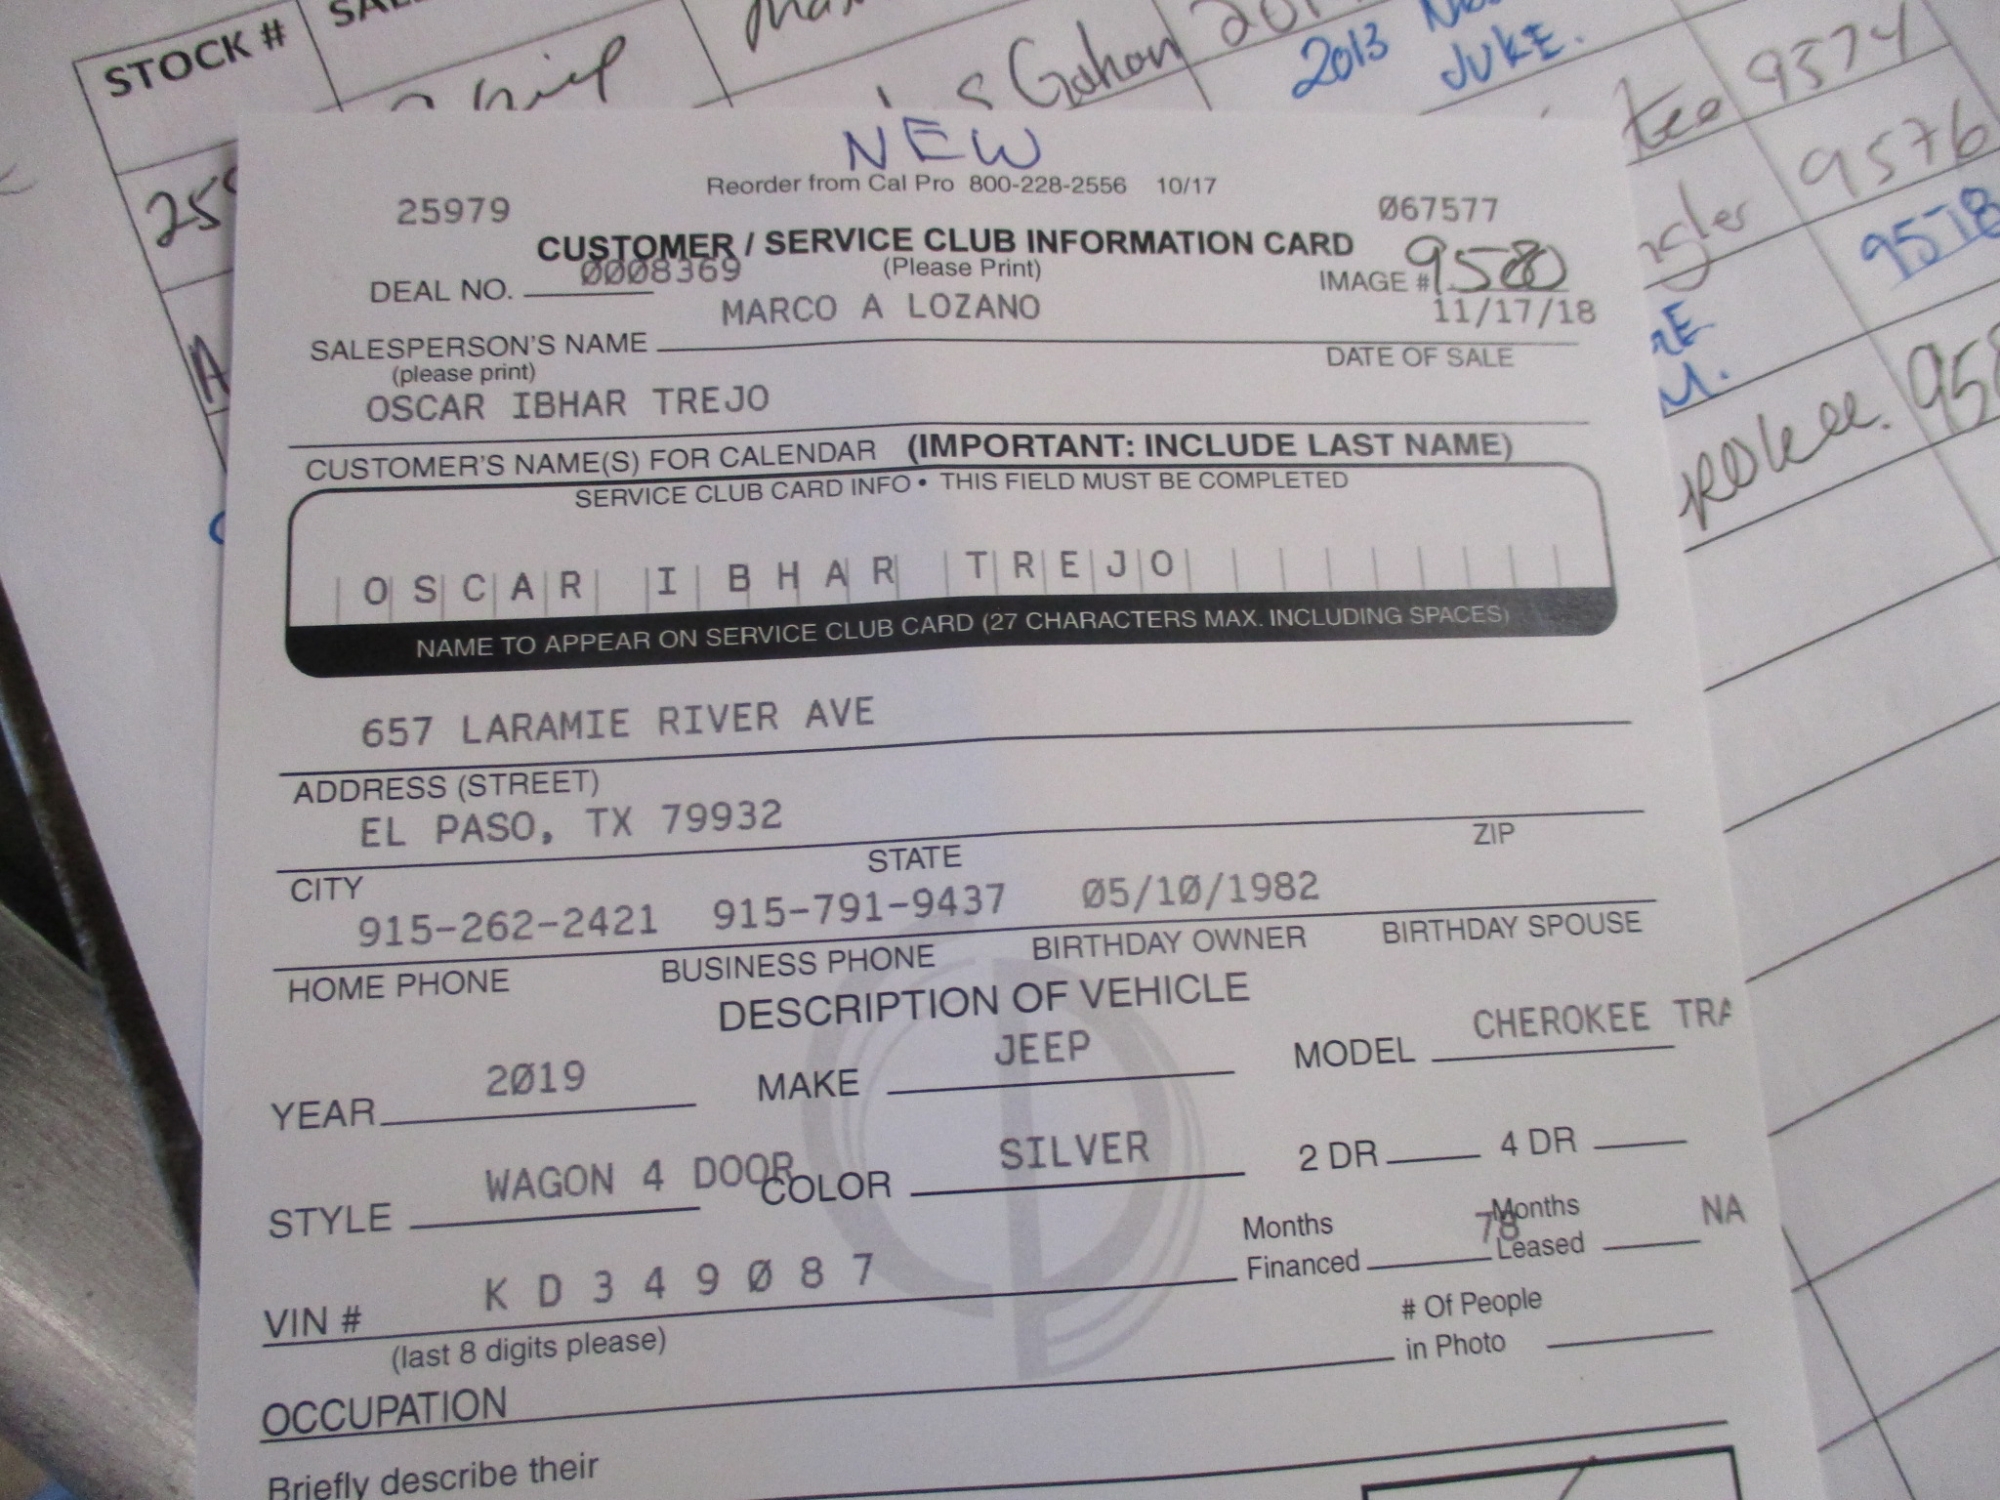 STOCK #
2013
JUKE.
Gahan
9574
9576
9578
NEW
Reorder from Cal Pro 800-228-2556 10/17
25979 Ø67577
CUSTOMER / SERVICE CLUB INFORMATION CARD
(Please Print)
DEAL NO. ØØØ8369 IMAGE # 9580
MARCO A LOZANO 11/17/18
SALESPERSON'S NAME DATE OF SALE
(please print)
OSCAR IBHAR TREJO
CUSTOMER'S NAME(S) FOR CALENDAR (IMPORTANT: INCLUDE LAST NAME)
SERVICE CLUB CARD INFO • THIS FIELD MUST BE COMPLETED
OSCAR IBHAR TREJO
NAME TO APPEAR ON SERVICE CLUB CARD (27 CHARACTERS MAX. INCLUDING SPACES)
657 LARAMIE RIVER AVE
ADDRESS (STREET)
EL PASO, TX 79932
CITY STATE ZIP
915-262-2421 915-791-9437 Ø5/1Ø/1982
HOME PHONE BUSINESS PHONE BIRTHDAY OWNER BIRTHDAY SPOUSE
DESCRIPTION OF VEHICLE
YEAR 2Ø19 MAKE JEEP MODEL CHEROKEE TRA
STYLE WAGON 4 DOOR COLOR SILVER 2 DR 4 DR
VIN # K D 3 4 9 Ø 8 7 Months Financed 78 Months Leased NA
(last 8 digits please)
# Of People
in Photo
OCCUPATION
Briefly describe their